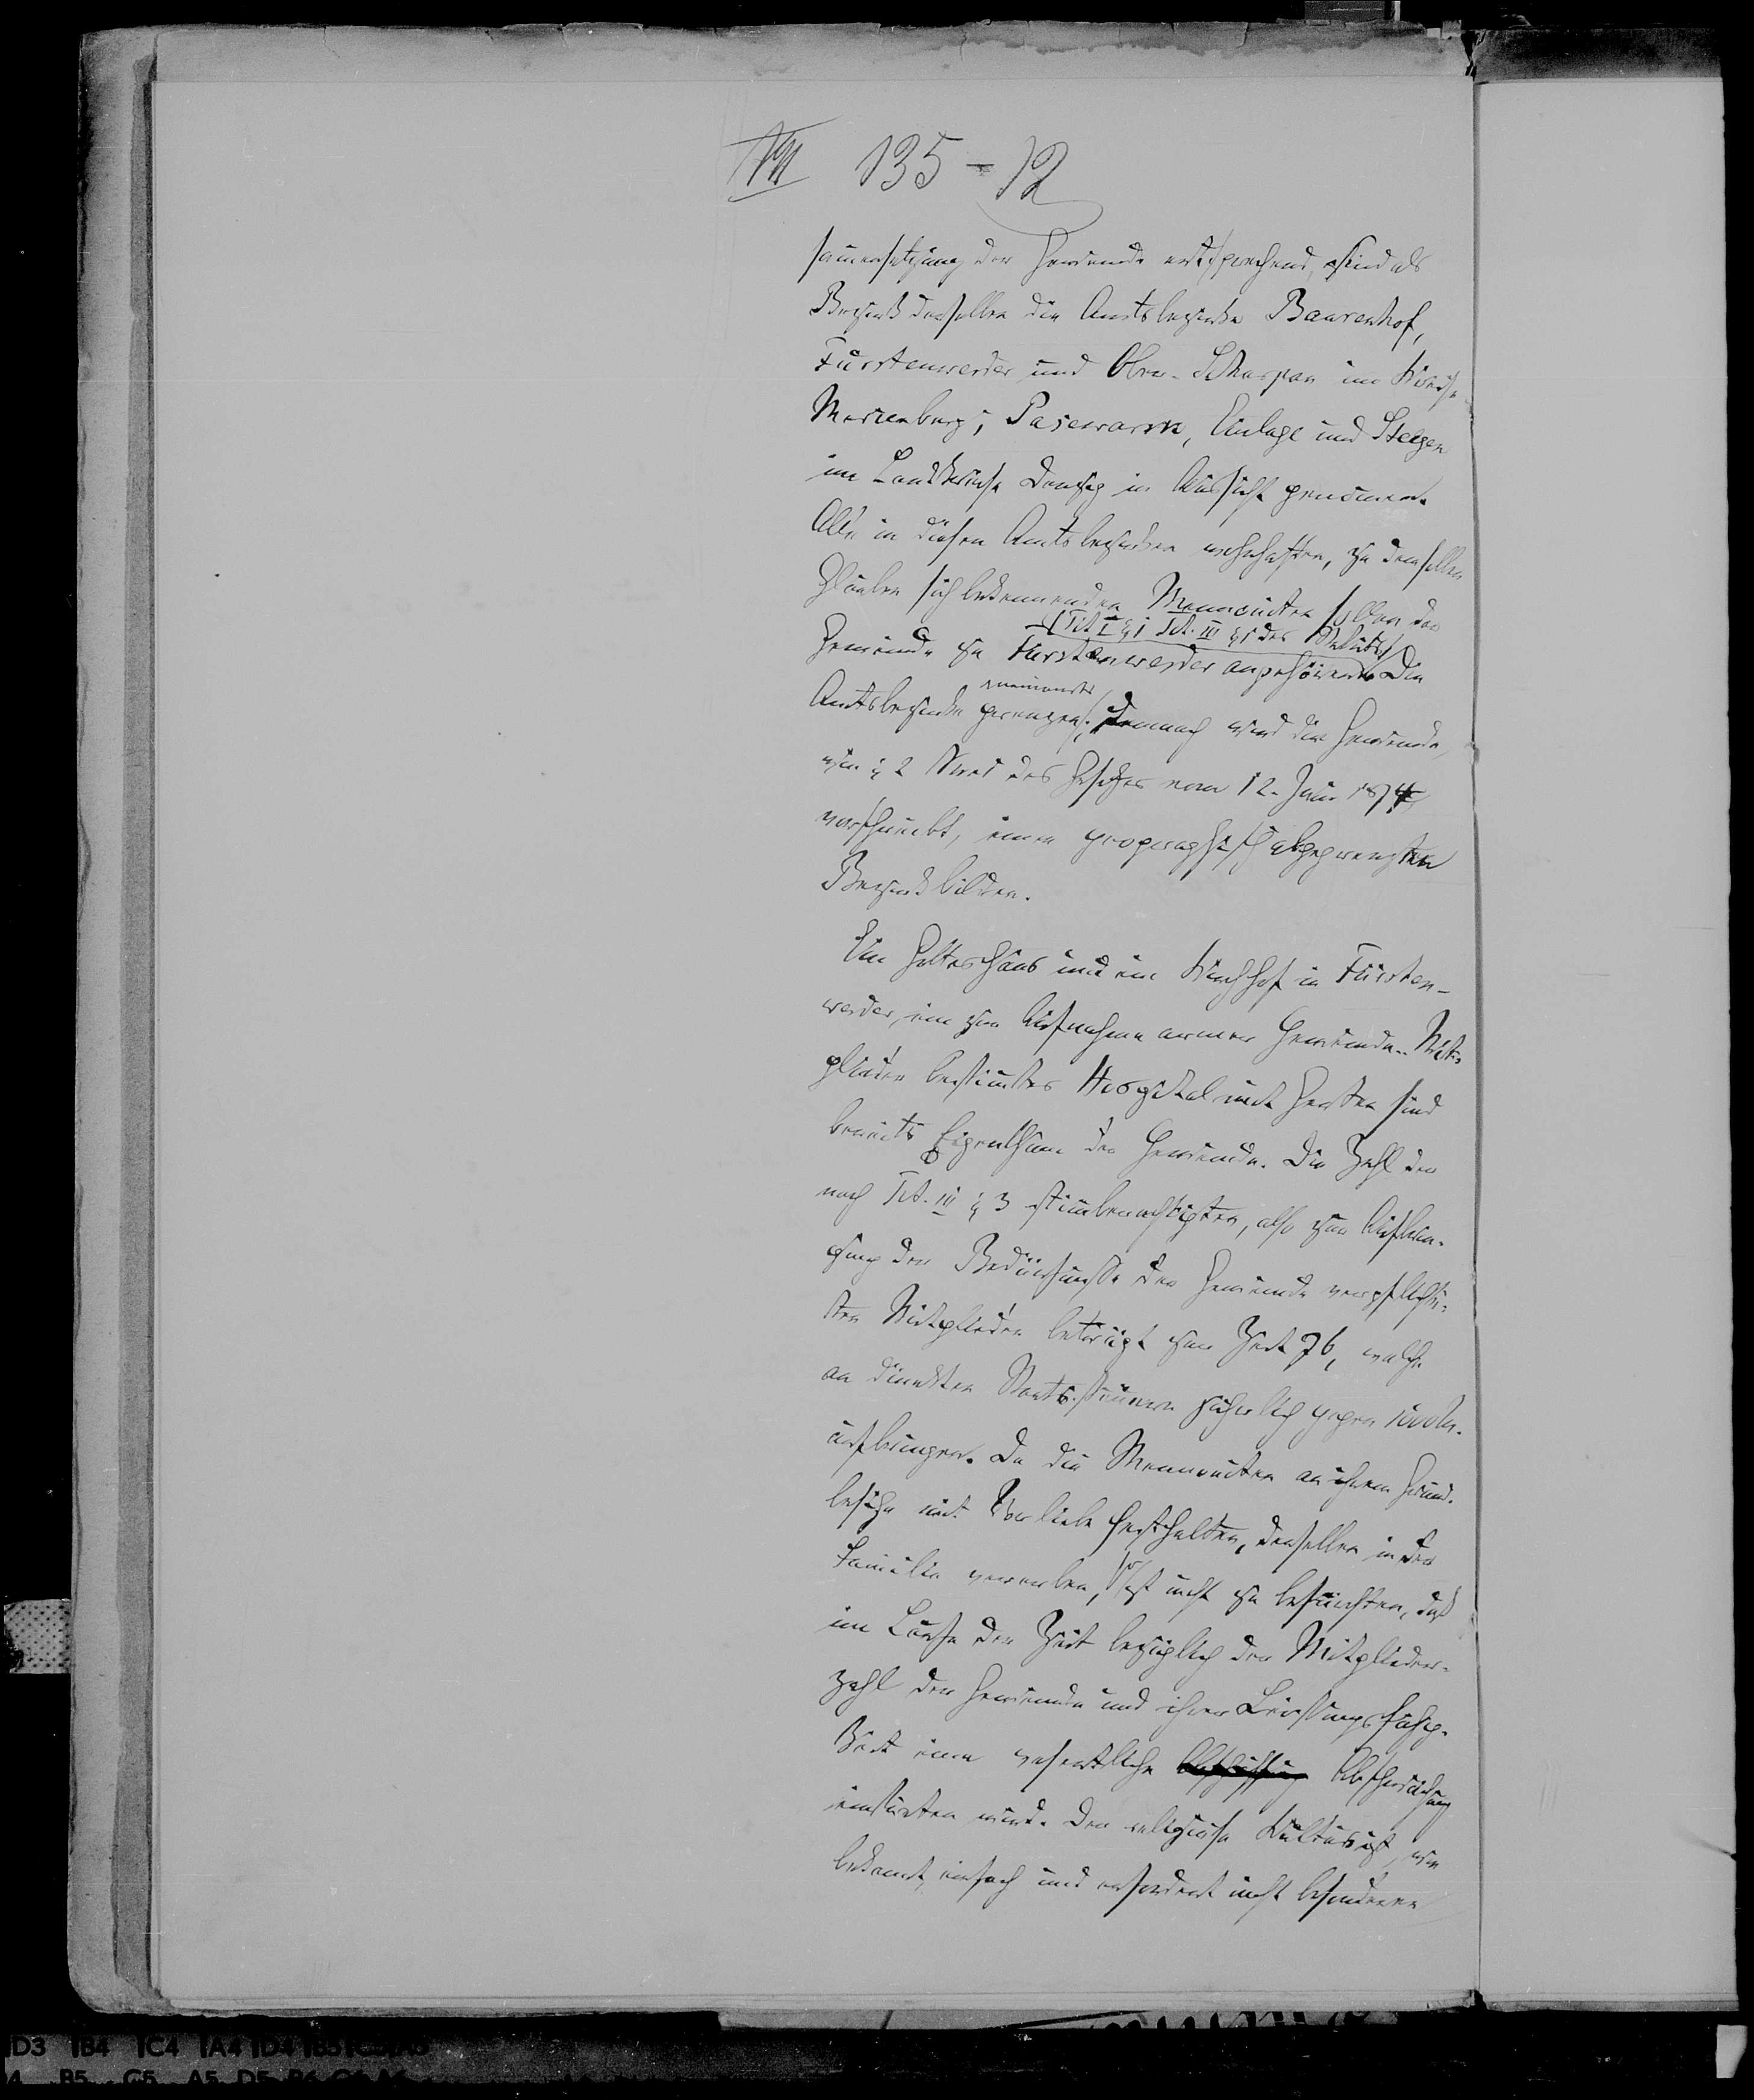 VII 135-12
sammensetzung der Gemeinde entsprechend, sind als
Bezirk derselben die Amtsbezirke Baarenhof,
Fürstenwerder und Ober-Scharpau im Kreise
Marienburg; Pasewark, Einlage und Steegen
im Landkreise Danzig in Aussicht genommen.
Alle in diesen Amtsbezirken wohnhaften, zu demselben
Glauben sich bekennenden Mennoniten sollen der
(Tit. I § 1 Tit. III § 1 des Statuts)
Gemeinde zu Fürstenwerder angehören. Die
aneinander
Amtsbezirke grenzen; demnach wird die Gemeinde,
wie § 2 des Gesetzes vom 12. Juni 1874
vorschreibt, einen geographisch abgegrenzten
Bezirk bilden.
Ein Gotteshaus und ein Kirchhof in Fürsten-
werder, ein zur Aufnahme armer Gemeinde-Mit-
glieder bestimmtes Hospital mit Garten sind
bereits Eigenthum der Gemeinde. Die Zahl der
nach Tit. III § 3 stimmberechtigten, also zur Aufbrin-
gung der Bedürfnisse der Gemeinde verpflichte-
ten Mitglieder beträgt zur Zeit 76, welche
an direkten Staatssteuern jährlich gegen
aufbringen. Da die Mennoniten an ihrem Grund-
besitze mit Vorliebe festhalten, denselben in der
Familie vererben, so ist nicht zu befürchten, daß
im Laufe der Zeit bezüglich der Mitglieder-
zahl der Gemeinde und ihrer Leistungsfähig-
keit eine wesentliche Abschwächung
eintreten wird. Der religiöse Kultus ist, wie
bekannt, einfach und erfordert nicht besondere